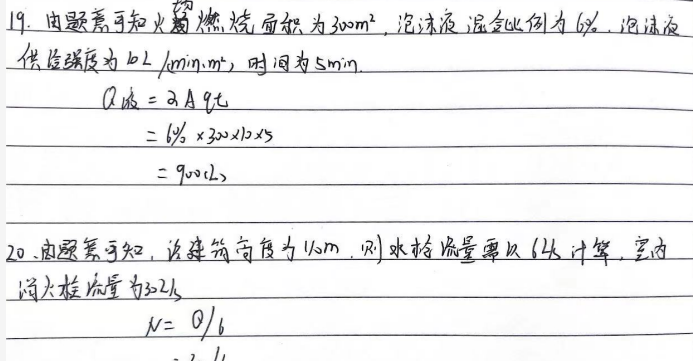 19. 由题意可知火场燃烧面积为300m²,泡沫液混合比例为6%,泡沫液
供给强度为10L/(min·m²),时间为5min.
Q液 = αAqt
= 6% ×300×10×5
= 900(L)
20、由题意可知,该建筑高度为110m,则水枪流量需以6L/s计算,室内
消火栓流量为30L/s
N= Q/6